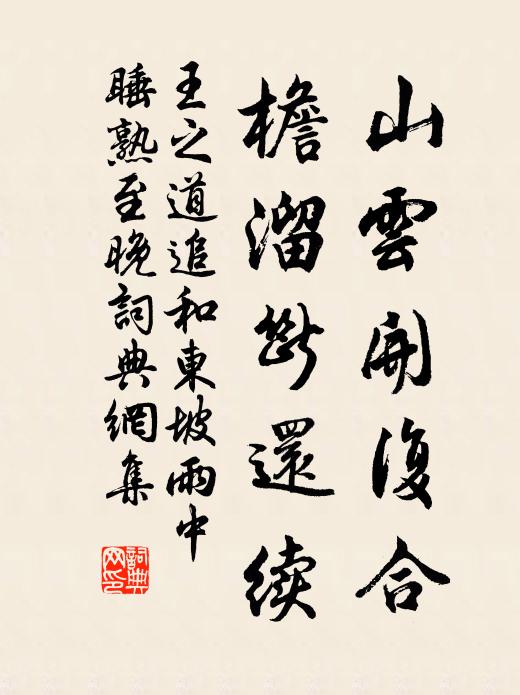 山雲開復合
檐溜斷還续
王之道追和東坡雨中
睡熟至晚詞典網集
詞典
网印